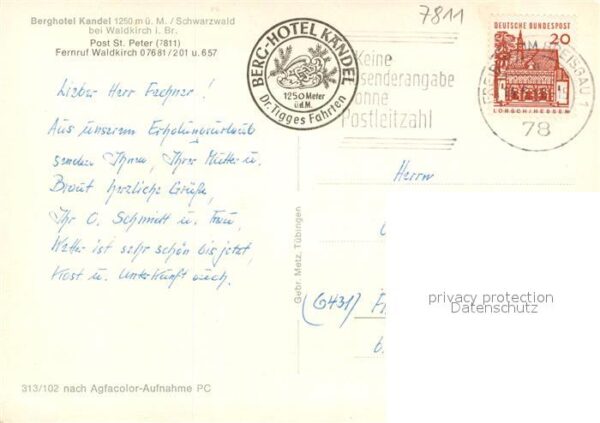 Berghotel Kandel 1250 m ü. M. / Schwarzwald
bei Waldkirch i. Br.
Post St. Peter (7811)
Fernruf Waldkirch 07681/201 u. 657
7811
BERG-HOTEL KANDEL
1250 Meter
ü.d.M.
Dr. Tigges Fahrten
Keine
senderangabe
ohne
Postleitzahl
DEUTSCHE BUNDESPOST
20
LORSCH/HESSEN
BREISGAU 1
78
Lieber Herr
Aus unserem Erholungsurlaub
senden Ihnen, Ihrer Mutter u.
Braut herzliche Grüße,
Ihr O. Schmitt u. Frau,
Wetter ist sehr schön bis jetzt,
Kost u. Unterkunft auch.
Herrn
(6431)
Gebr. Metz, Tübingen
privacy protection
Datenschutz
313/102 nach Agfacolor-Aufnahme PC